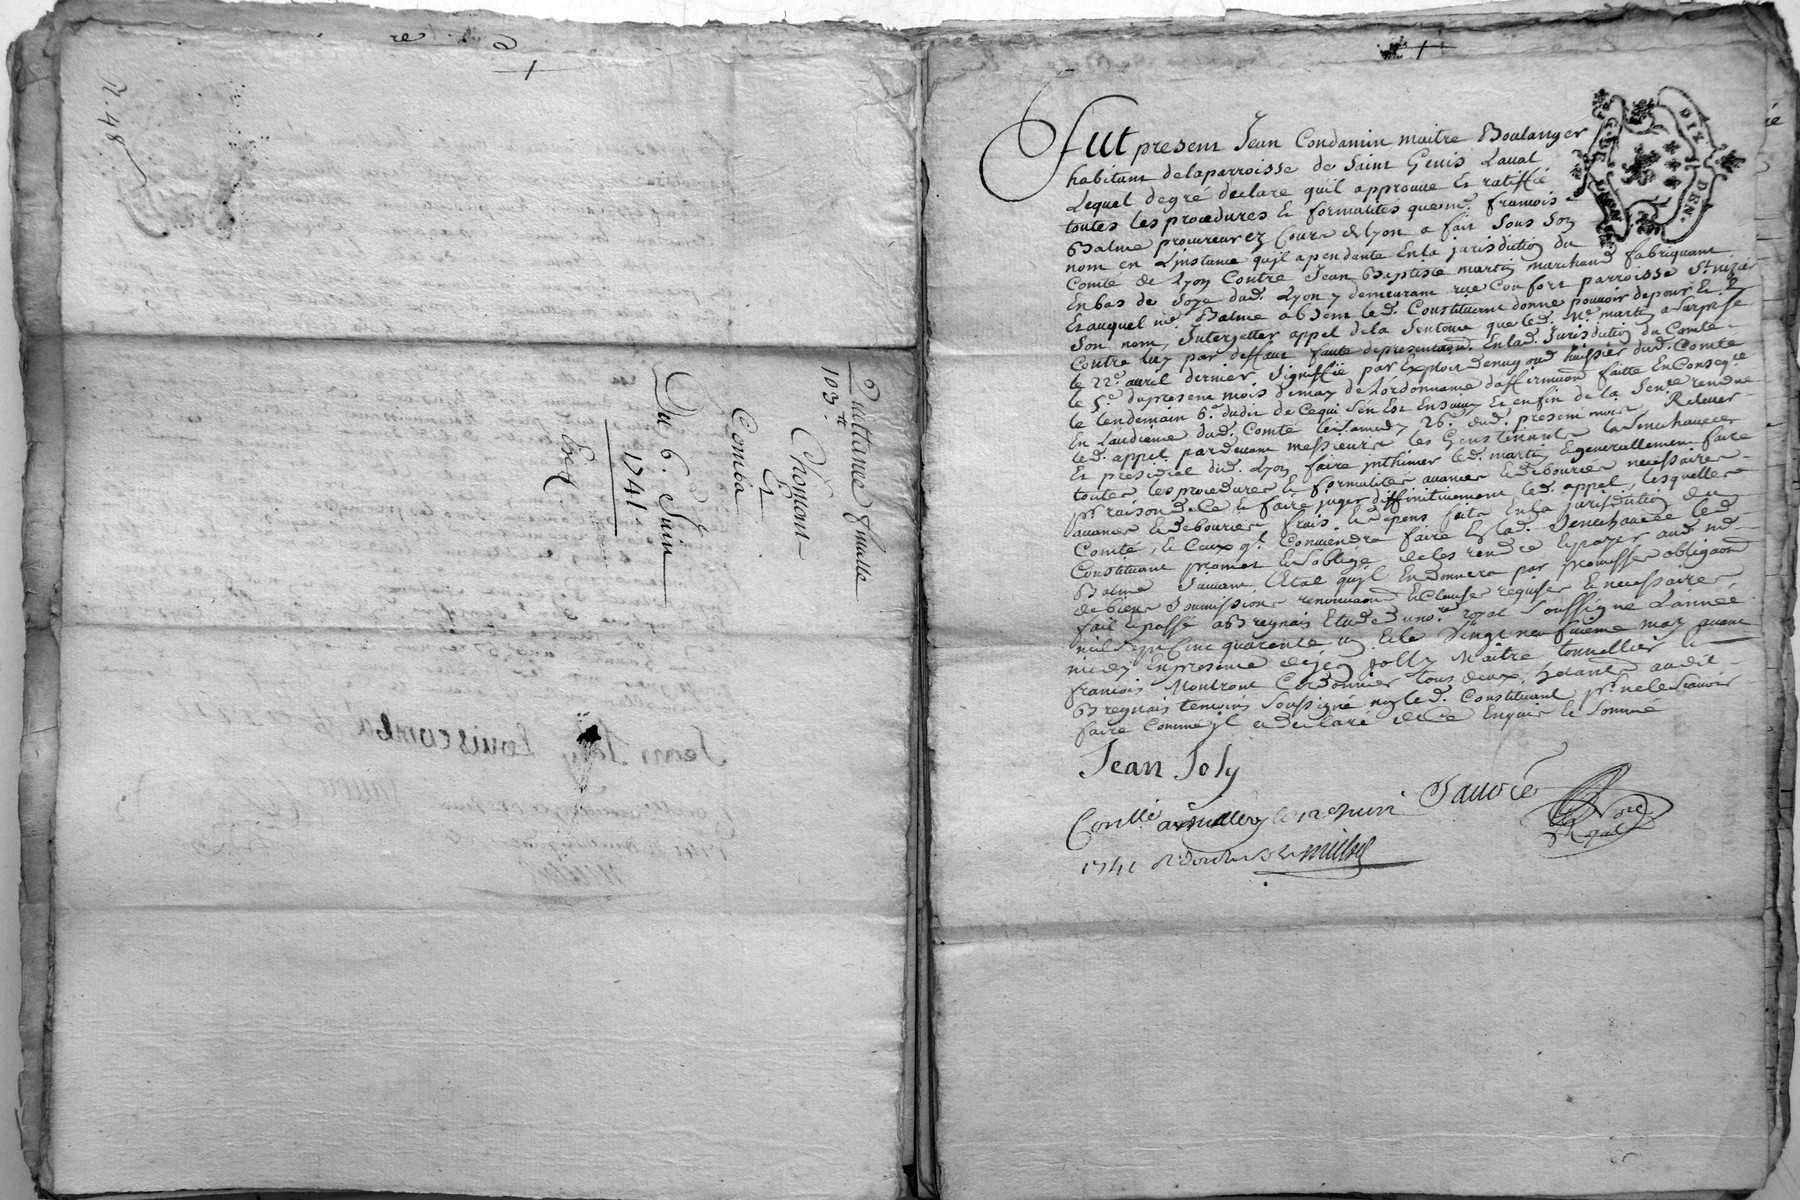 R. 48
Quittance finalle
103 tt
Chomont
Et
Comba
Du 6e. Juin
1741
Exp.
GEN. DE LYON
DIX DEN.
Fut present Jean Condamin maitre Boulanger
habitant delaparroisse de Saint Genis Laval
Lequel degré declare qu'il approuve Et ratiffie
toutes les procedures & formalités que me. francois
Balme procureur ez Cours de Lyon a fait sous son
nom en Linstance quil apendante Enla jurisdiction du
Comté de Lyon Contre Jean Baptiste martin marchand fabriquant
Enbas de Soye dud. Lyon y demeurant rue Confort parroisse St. nizier
Et auquel me. Balme absent led. Constituant donne pouvoir depour Et En
Son nom, Interjetter appel dela Sentence que led. Sr. martin a Surprise
Contre luy par deffaut faute depresentaon. Enlad. Jurisdiction du Comté
le 22e. avril dernier, Signiffié par Exploit de huissier dud. Comté
le 5e. dupresent mois demay de Lordonnance daffirmaon. faitte En Conseqce
le lendemain 6e. dudit de Cequi Sen Est Ensuivy Et enfin de la Sence rendue
En Laudience dud. Comté le Samedy 26e. dud. present mois, Relever
led. appel pardevant messieurs les Gens tenants la Senechaussée
Et presidial dud. Lyon faire inthimer led. martin & generallement faire
toutes les procedures & formalités avances & debourcés necessaires
pr raison de Ce & faire juger diffinitivement led. appel, lesquelles
avances & debources frais & depens faits Enla jurisdiction du
Comté, & Ceux ql. Conviendra faire En lad. Senechaussée led.
Constituant promet & Soblige de les rendre & payer aud. me.
Balme Suivant Létat quil En donnera par promesses obligaon.
de biens Soumissions renonciaons & Clauses requises & necessaires
fait & passé a Bregnais Etude du nore. royal Soussigné Lannée
mil Sept Cent quarante un & le Vingt neufvieme may avant
midy En presence de jean jolly Maitre tonnellier &
francois Montront Cordonnier tous deux habitants audit
Bregnais temoins Soussigné non led. Constituant pr. ne le Scavoir
faire Comme il a declaré de Ce Enquis & Sommé
Jean Joly
Sauvée
Nore. Royal
Conllé a millery le 12e juin
1741 R. douze s. millet